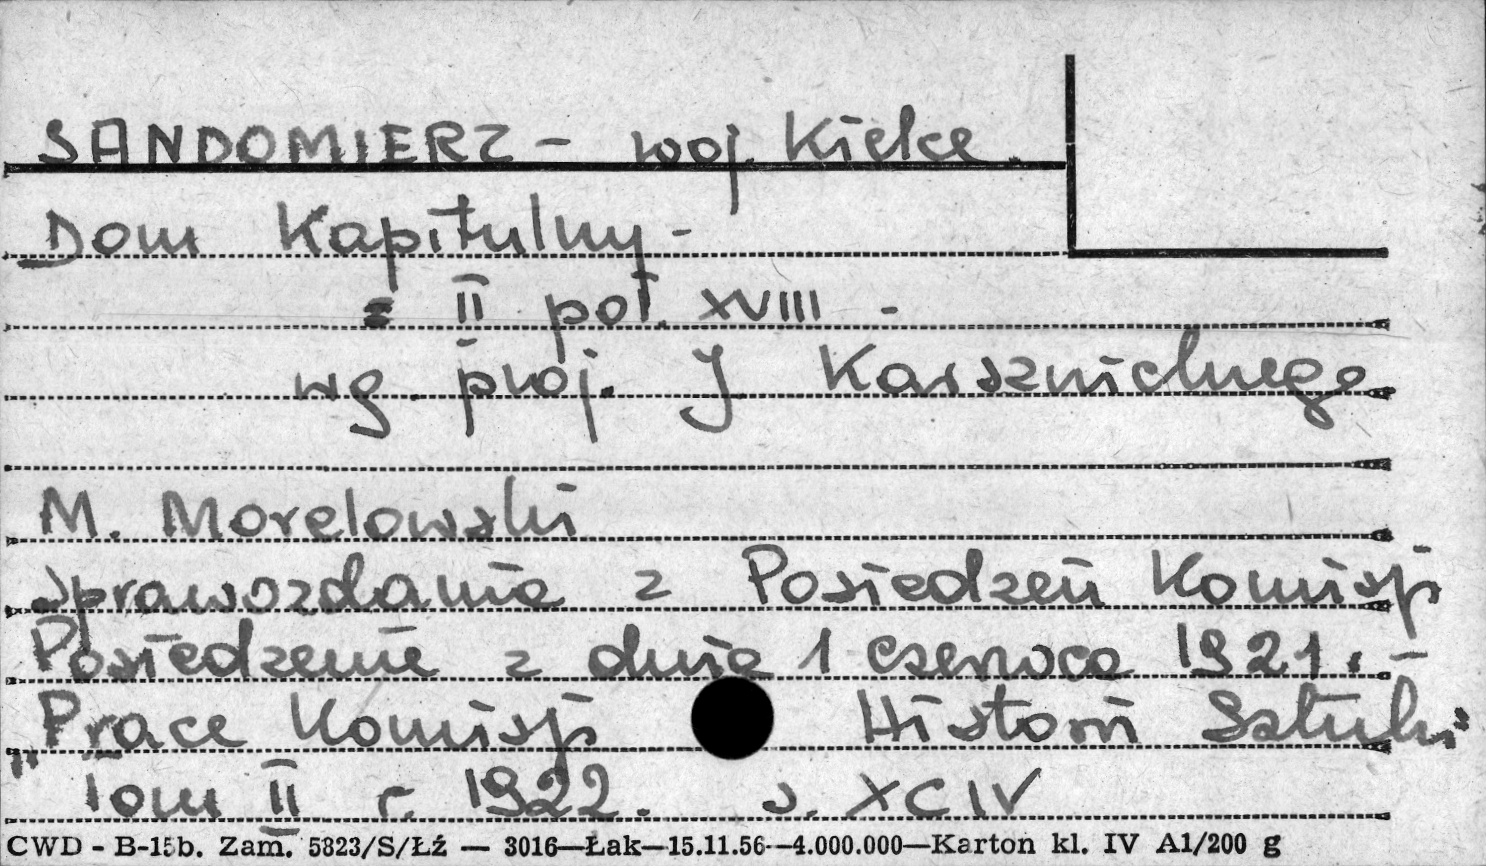 SANDOMIERZ - woj. Kielce.
Dom Kapitulny -
z II poł. XVIII -
wg. proj. J Karsznickiego
M. Morelowski
Sprawozdanie z Posiedzeń Komisji
Posiedzenie z dnia 1 czerwca 1921. -
"Prace Komisji Historii Sztuki"
Tom II r. 1922. s. XCIV
CWD - B-15b. Zam. 5823/S/Łź — 3016—Łak—15.11.56—4.000.000—Karton kl. IV A1/200 g